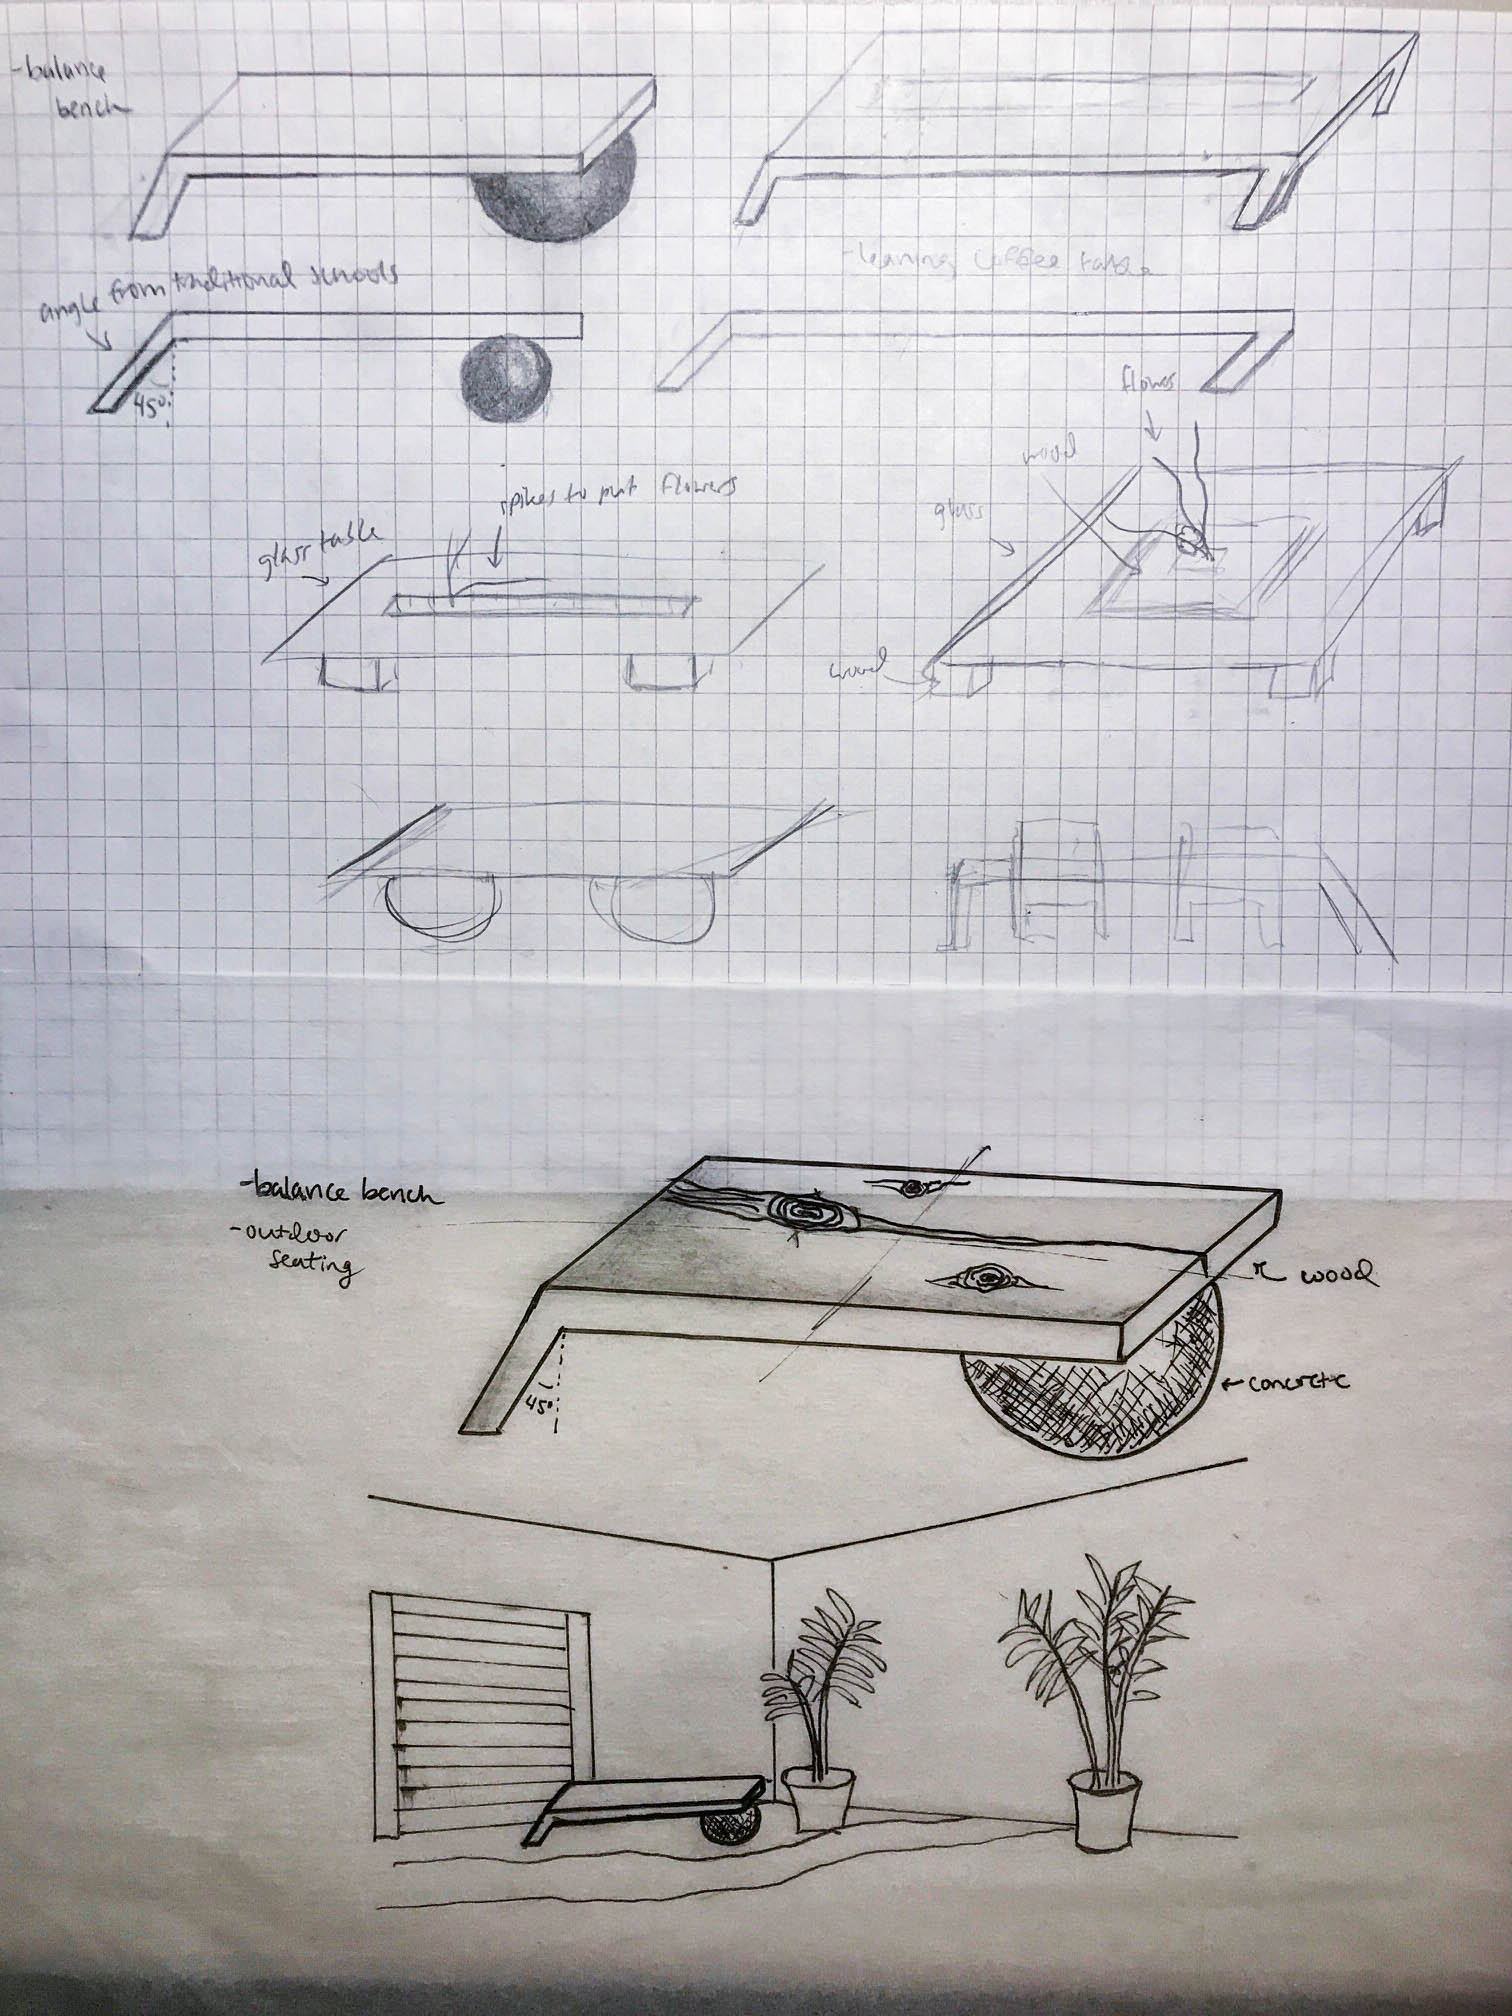 -balance
bench
-leaning coffee table
angle from traditional schools
45°
flower
wood
spikes to put flowers
glass
glass table
wood
-balance bench
-outdoor
seating
wood
concrete
45°